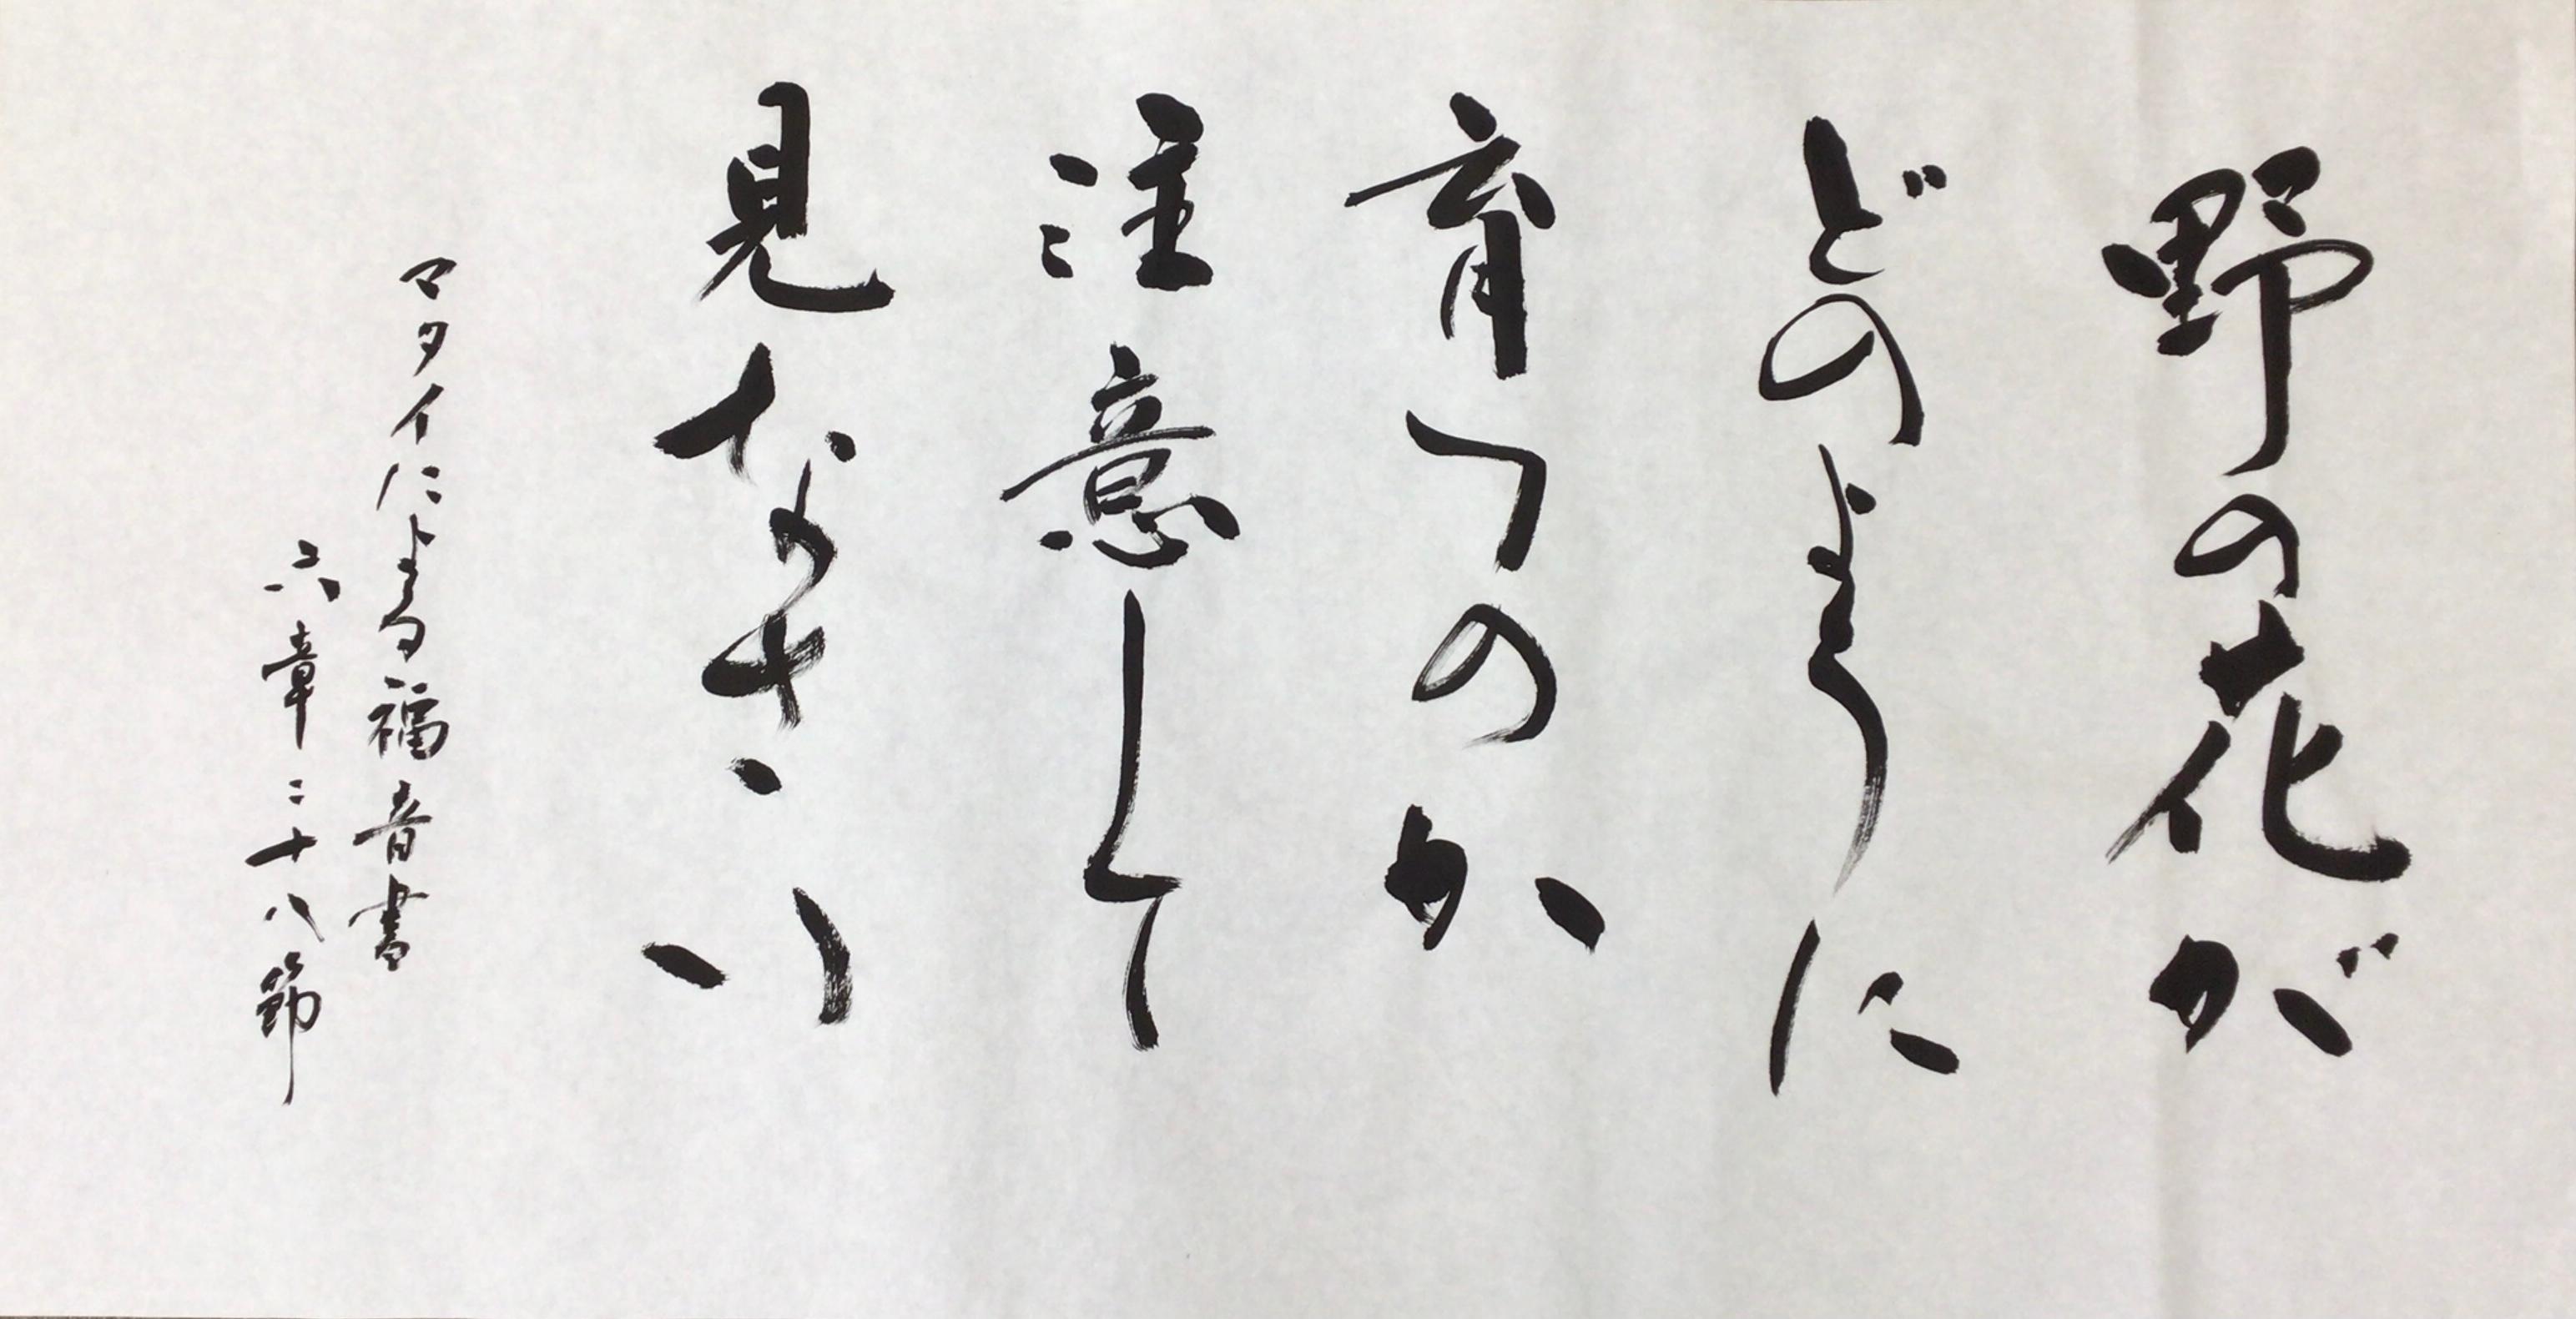 野の花が
どのように
育つのか
注意して
見なさい
マタイによる福音書
六章二十八節